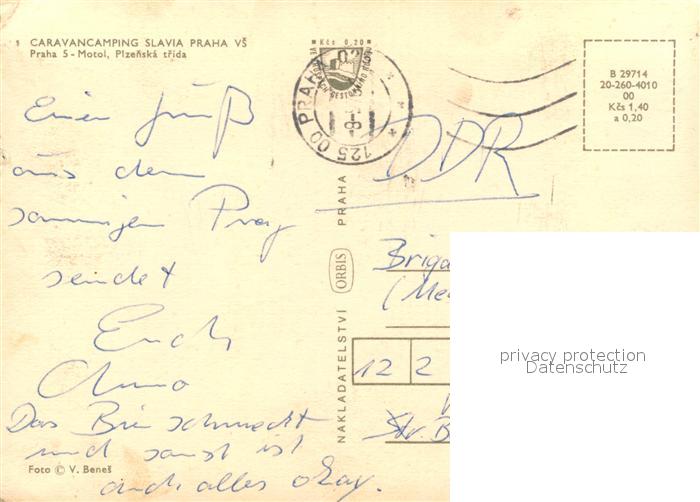 1 CARAVANCAMPING SLAVIA PRAHA VŠ
Praha 5 - Motol, Plzeňská třída
Kčs 0,20
125 00 PRAHA
B 29714
20-260-4010
00
Kčs 1,40
a 0,20
Einen Gruß
aus dem
sonnigen Prag
sendet
Euch
Das Bier schmeckt
und sonst ist
auch alles okay.
Foto © V. Beneš
NAKLADATELSTVÍ ORBIS PRAHA
DDR
Briga
(Me
12 2
Str. B
privacy protection
Datenschutz